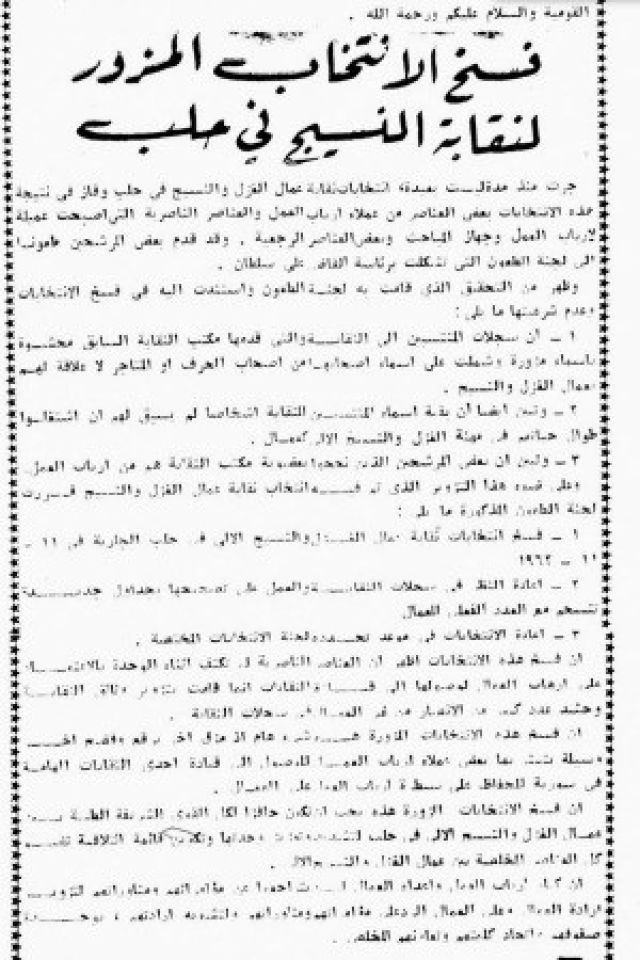 القومية والسلام عليكم ورحمة الله .
فسخ الانتخاب المزور
لنقابة النسيج في حلب
جرت منذ مدة ليست بعيدة انتخابات نقابة عمال الغزل والنسيج في حلب وفاز في نتيجة
هذه الانتخابات بعض العناصر من عملاء ارباب العمل والعناصر الناصرية التي اصبحت عميلة
لارباب العمل وجهاز المباحث وبعض العناصر الرجعية . وقد قدم بعض المرشحين طعونا
الى لجنة الطعون التي تشكلت برئاسة القاضي علي سلطان .
وظهر من التحقيق الذي قامت به لجنة الطعون واستندت اليه في فسخ الانتخابات
وعدم شرعيتها ما يلي :
١ - أن سجلات المنتسبين الى النقابة والتي قدمها مكتب النقابة السابق محشوة
باسماء مزورة وشملت على اسماء اصحابها من اصحاب الحرف او المتاجر لا علاقة لهم
بعمال الغزل والنسيج .
٢ - وتبين ايضا أن بقية اسماء المنتسبين للنقابة اشخاصا لم يسبق لهم ان اشتغلوا
طوال حياتهم في مهنة الغزل والنسيج الالي كعمال .
٣ - وتبين ان بعض المرشحين الذين نجحوا بعضوية مكتب النقابة هم من ارباب العمل
وعلى ضوء هذا التزوير الذي تم فيه انتخاب نقابة عمال الغزل والنسيج قررت
لجنة الطعون المذكورة ما يلي :
١ - فسخ انتخابات نقابة عمال الغزل والنسيج الالي في حلب الجارية في ١١ -
١١ - ١٩٦٢
٢ - اعادة النظر في سجلات النقابة والعمل على تصحيحها بجداول جديدة
تنسجم مع العدد الفعلي للعمال
٣ - اعادة الانتخابات في موعد تحدده لجنة الانتخابات المختصة .
ان فسخ هذه الانتخابات اظهر أن العناصر الناصرية لم تكتف اثناء الوحدة بالاعتماد
على ارهاب العمال لوصولها الى قيادة النقابات انما قامت بتزوير وثائق النقابة
وحشد عدد كبير من الانصار من غير العمال في سجلات النقابة .
ان فسخ هذه الانتخابات المزورة
وسيلة بعض عملاء ارباب العمل للوصول الى قيادة احدى النقابات الهامة
في سورية للحفاظ على سيطرة ارباب العمل على العمال .
ان فسخ الانتخابات المزورة هذه يجب ان تكون حافزا لكل القوى الشريفة الطيبة بين
عمال الغزل والنسيج الالي في حلب وحدتها وتكوين قائمة ائتلافية تضم
كل العناصر المخلصة بين عمال الغزل والنسيج الالي .
ان كيد ارباب العمل واعداء العمال عن مؤامراتهم ومناوراتهم لتزوير
ارادة العمال وعلى العمال الرد على مؤامراتهم ومناوراتهم ولتشويه ارادتهم ، بوحدة
صفوفهم واتحاد كلمتهم وتعاونهم المخلص .